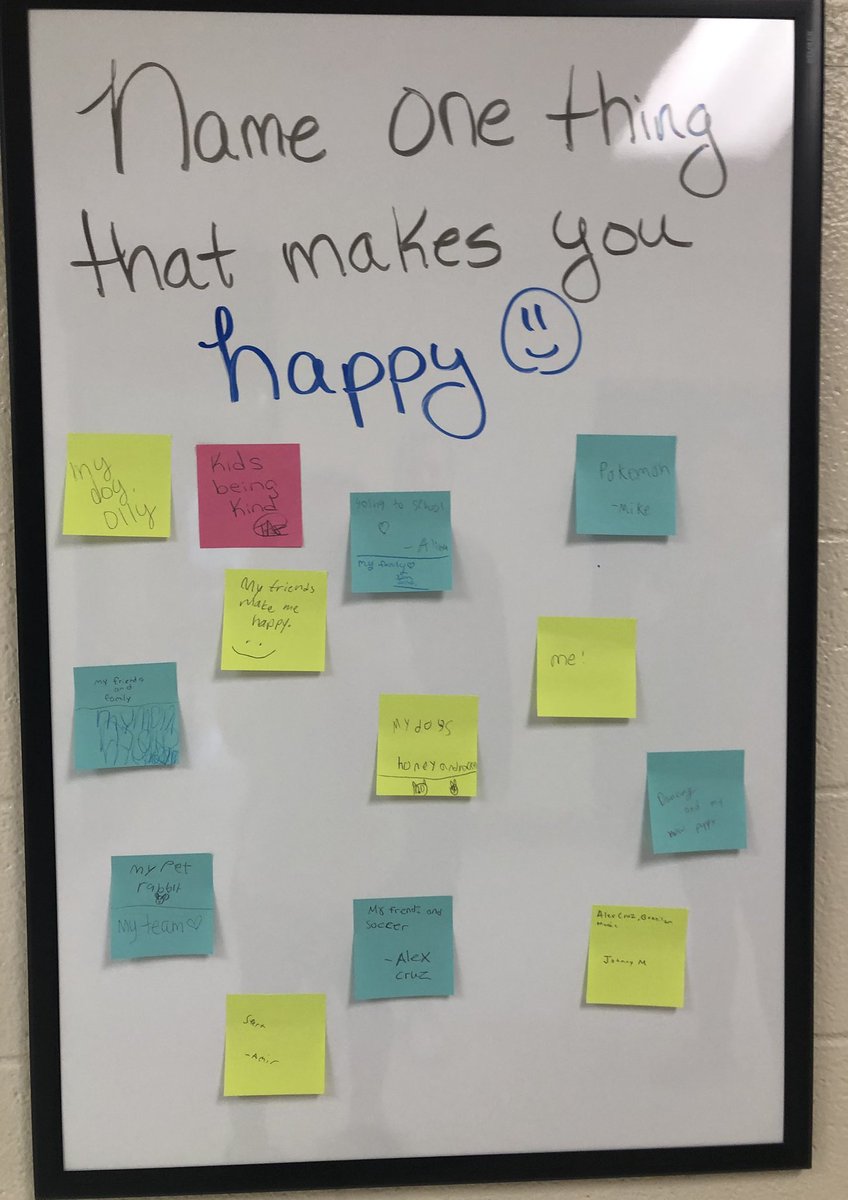 Name one thing
that makes you
happy
my
dog,
Olly
Kids
being
Kind
going to school
- Alina
My family
Pokemon
-Mike
My friends
make me
happy.
me!
my friends
and
family
My dogs
honey and
Dancing
and my
new puppy
my Pet
rabbit
My team
My friends and
soccer
- Alex
cruz
Alex Cruz, Brazilian
Music
Johnny M
Sara
-Amir